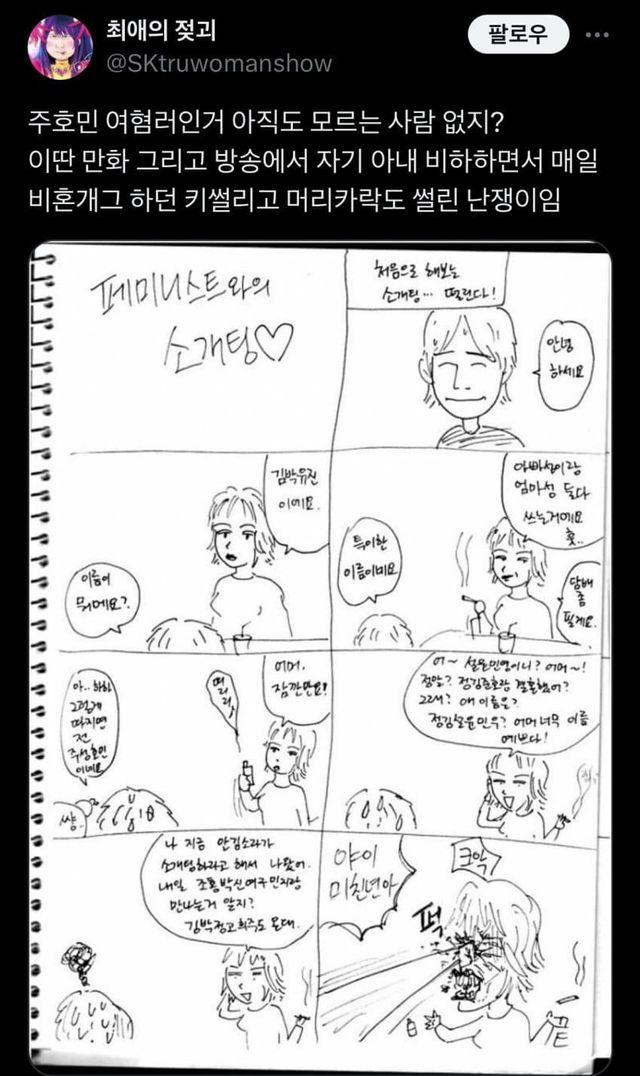 최애의 젖괴
팔로우
@SKtruwomanshow
주호민 여혐러인거 아직도 모르는 사람 없지?
이딴 만화 그리고 방송에서 자기 아내 비하하면서 매일
비혼개그 하던 키썰리고 머리카락도 썰린 난쟁이임
페미니스트와의
소개팅♡
처음으로 해보는
소개팅… 떨린다!
안녕
하세요
김박유진
이에요.
이름이
뭐예요?
아빠성이랑
엄마성 둘다
쓰는거예요
훗..
특이한
이름이네요
담배
좀
필게요.
어머.
잠깐만요!
띠리리
아.. 하하
그렇게
따지면
전
주성호민
이네요
썅
어~ 설윤민영이니? 어머~!
정말? 정김준호랑 결혼했어?
그래? 애 이름은?
정김설윤민우? 어머 너무 이름
예쁘다!
나 지금 안김소라가
소개팅하라고 해서 나왔어.
내일 조홍박신여구민지랑
만나는거 알지?
김박정고희주도 온대.
야이
미친년아
크악
퍽
끝